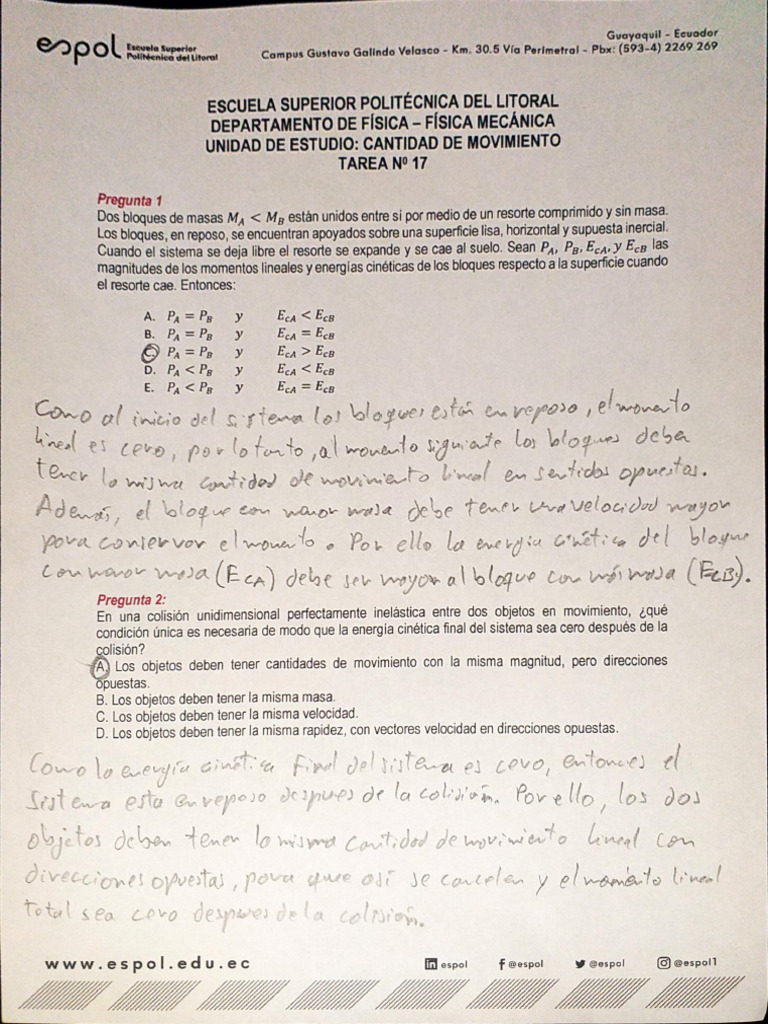 espol Escuela Superior
Politécnica del Litoral
Guayaquil - Ecuador
Campus Gustavo Galindo Velasco - Km. 30.5 Vía Perimetral - Pbx: (593-4) 2269 269
ESCUELA SUPERIOR POLITÉCNICA DEL LITORAL
DEPARTAMENTO DE FÍSICA – FÍSICA MECÁNICA
UNIDAD DE ESTUDIO: CANTIDAD DE MOVIMIENTO
TAREA Nº 17
Pregunta 1
Dos bloques de masas M_A < M_B están unidos entre sí por medio de un resorte comprimido y sin masa.
Los bloques, en reposo, se encuentran apoyados sobre una superficie lisa, horizontal y supuesta inercial.
Cuando el sistema se deja libre el resorte se expande y se cae al suelo. Sean P_A, P_B, E_cA, y E_cB las
magnitudes de los momentos lineales y energías cinéticas de los bloques respecto a la superficie cuando
el resorte cae. Entonces:
A. P_A = P_B y E_cA < E_cB
B. P_A = P_B y E_cA = E_cB
C. P_A = P_B y E_cA > E_cB
D. P_A < P_B y E_cA < E_cB
E. P_A < P_B y E_cA = E_cB
Como al inicio del sistema los bloques están en reposo, el momento
lineal es cero, por lo tanto, al momento siguiente los bloques deben
tener la misma cantidad de movimiento lineal en sentidos opuestas.
Además, el bloque con menor masa debe tener una velocidad mayor
para conservar el momento. Por ello la energía cinética del bloque
con menor masa (E_CA) debe ser mayor al bloque con más masa (E_CB).
Pregunta 2:
En una colisión unidimensional perfectamente inelástica entre dos objetos en movimiento, ¿qué
condición única es necesaria de modo que la energía cinética final del sistema sea cero después de la
colisión?
A. Los objetos deben tener cantidades de movimiento con la misma magnitud, pero direcciones
opuestas.
B. Los objetos deben tener la misma masa.
C. Los objetos deben tener la misma velocidad.
D. Los objetos deben tener la misma rapidez, con vectores velocidad en direcciones opuestas.
Como la energía cinética final del sistema es cero, entonces el
sistema esta en reposo despues de la colisión. Por ello, los dos
objetos deben tener la misma cantidad de movimiento lineal con
direcciones opuestas, para que así se cancelen y el momento lineal
total sea cero despues de la colisión.
www.espol.edu.ec
espol
@espol
@espol
@espol1